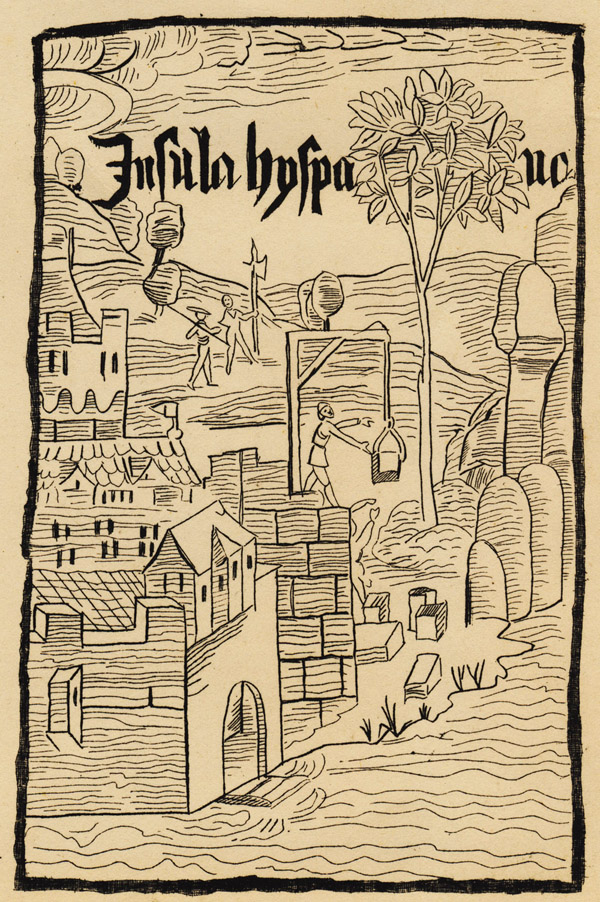 Inſula hyſpa na